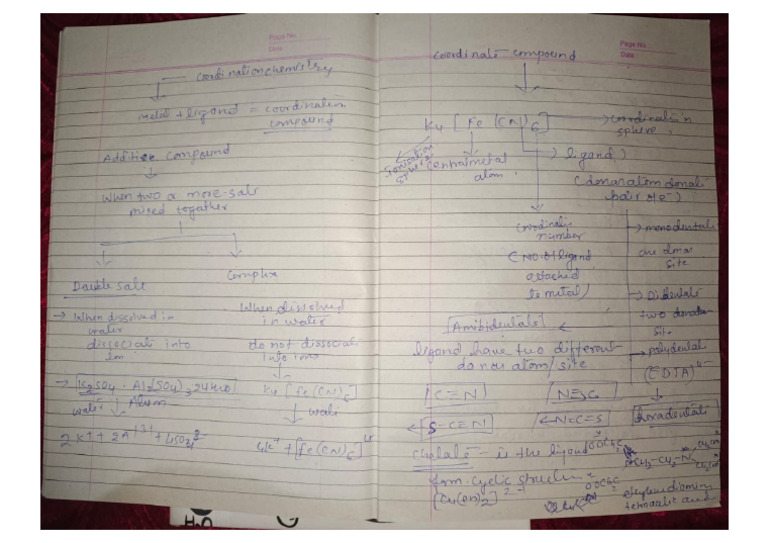 Page No.
Date
Coordination chemistry
metal + ligand = coordination
compound
Addition Compound
When two or more salt
mixed together
Double salt
→ When dissolved in
water
dissociat into
Ion
→ K2SO4 · Al2(SO4)3 24H2O
water ↓ Alum
2K+ + 2Al 3+ + 4SO4 2-
Complex
When dissolved
in water
do not dissociat
into ions
K4 [Fe(CN)6]
↓ water
4K+ + [Fe(CN)6] 4-
Page No.
Date
Coordinate compound
K4 [Fe (CN)6]
→ coordination
sphere
Ionisation
sphere
Central metal
atom
→ ligand
(donar atom donate
pair of e-)
Coordinate
number
(NO. of ligand
attached
to metal)
→ monodentate
one donar
site
→ Didentate
two donar
site
→ polydental
(EDTA) 4-
hexadentate
Ambidentate
ligand have two different
donor atom/site
C≡N
N≡C
S-C≡N
←N=C=S
Chelate - is the ligand
form cyclic structure
ethylene diamine